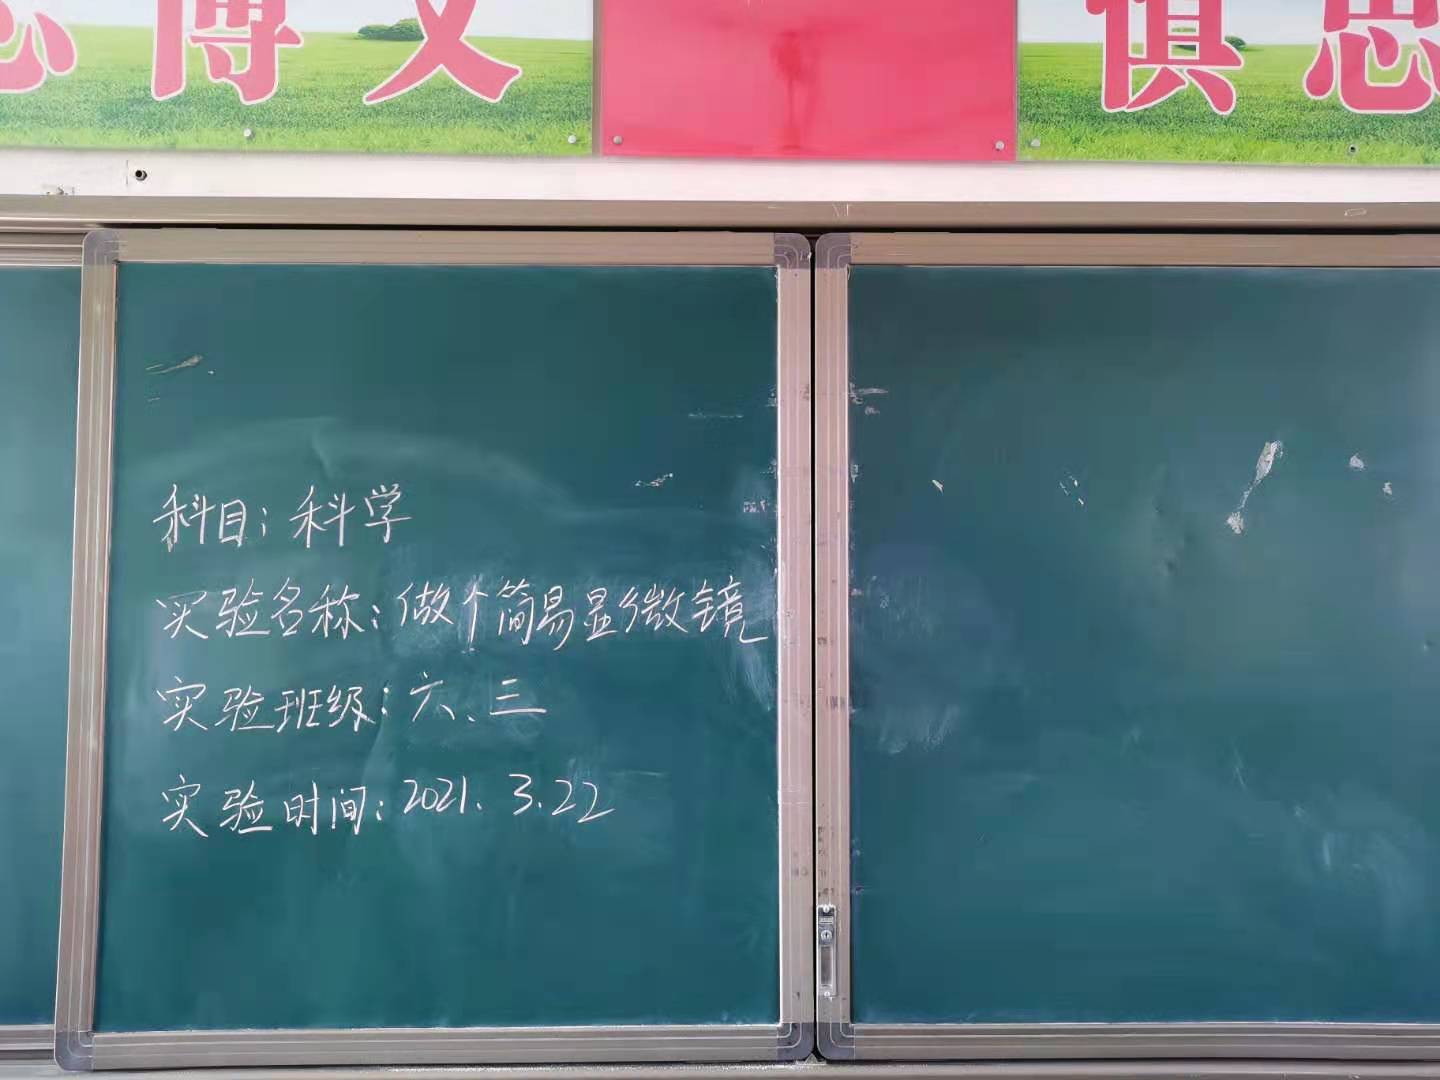 博文
慎思
科目：科学
实验名称：做个简易显微镜
实验班级：六、三
实验时间：2021.3.22